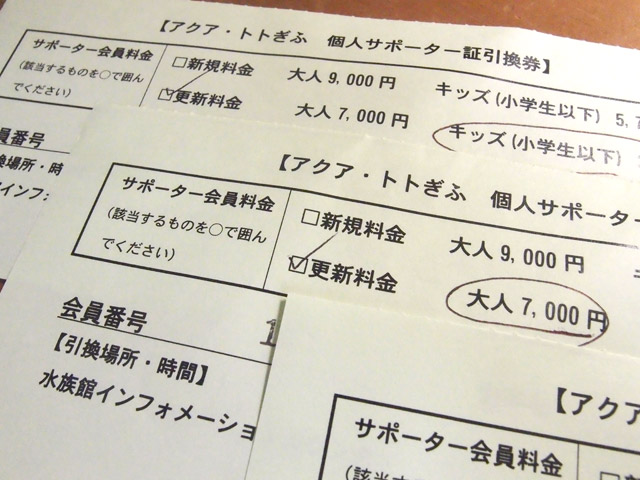 【アクア・トトぎふ 個人サポーター証引換券】
サポーター会員料金
(該当するものを○で囲んでください)
□新規料金 大人 9,000 円 キッズ(小学生以下) 5,
☑更新料金 大人 7,000 円 キッズ(小学生以下)
員番号
換場所・時
インフ
【アクア・トトぎふ 個人サポーター
サポーター会員料金
(該当するものを○で囲ん
でください)
□新規料金 大人 9,000 円
☑更新料金 大人 7,000 円
会員番号 1
【引換場所・時間】
水族館インフォメーショ
【アクア
サポーター会員料金
(該当す